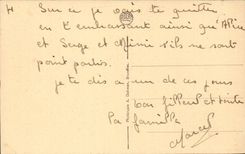 4
Sur ce je vais te quitter
en t'embrassant ainsi qu'Alice
et Serge et Mimie s'ils ne sont
point partis.
je te dis a un de ces jours
bon filleul et toute
la famille
Marcel